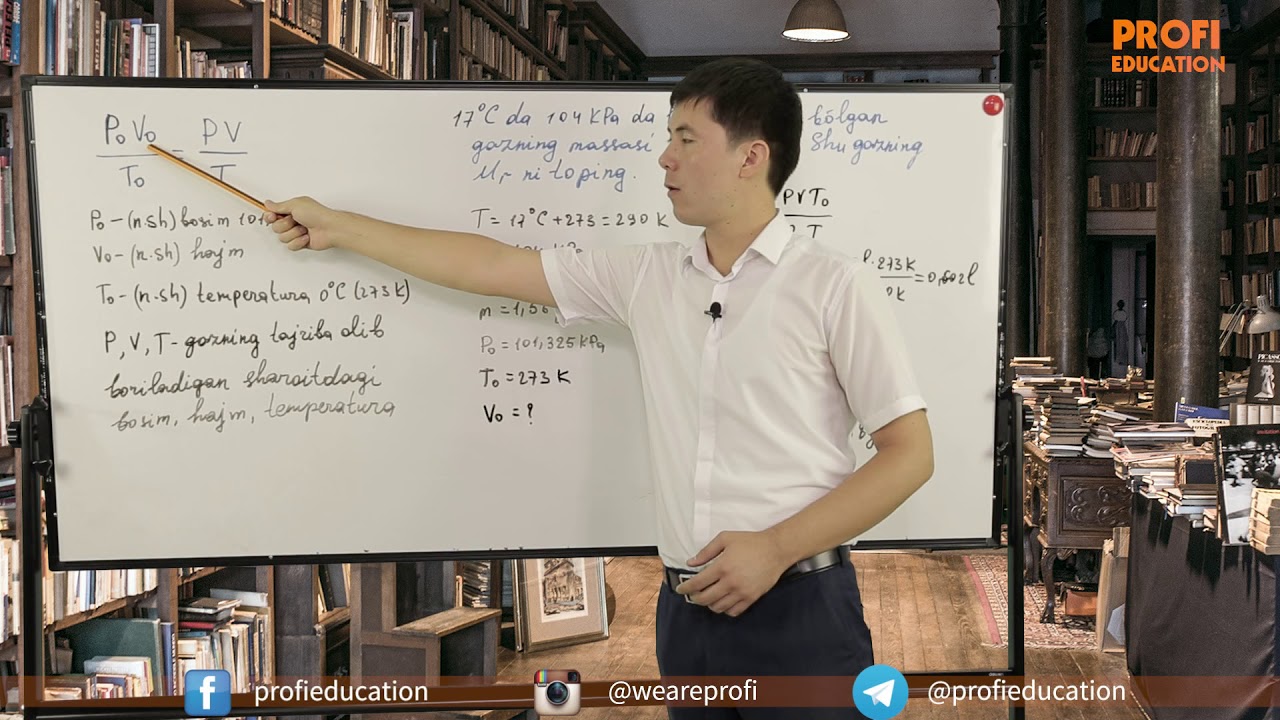 PROFI
EDUCATION
P₀V₀ = PV
T₀ T
P₀ - (n.sh) bosim 101
V₀ - (n.sh) hajm
T₀ - (n.sh) temperatura 0°C (273 K)
P, V, T - gazning tajriba olib
boriladigan sharoitdagi
bosim, hajm, temperatura
17°C da 104 KPa da bõlgan
gazning massasi Shu gazning
Mr ni toping.
T = 17°C + 273 = 290 K
m = 1,56
P₀ = 101,325 KPa
T₀ = 273 K
V₀ = ?
PVT₀
T
273 K = 0,602 l
0K
profieducation
@weareprofi
@profieducation